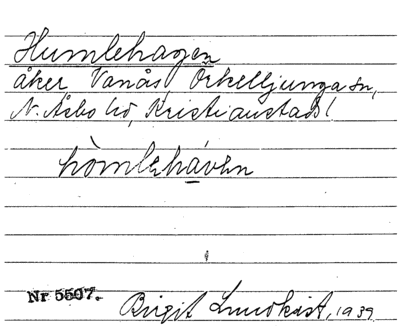 Humlehagen
åker, Vanås, Örkelljunga sn,
N. Åsbo hd, Kristianstads l
hòmlehàven
Nr 5507.
Birgit Lundkvist, 1939